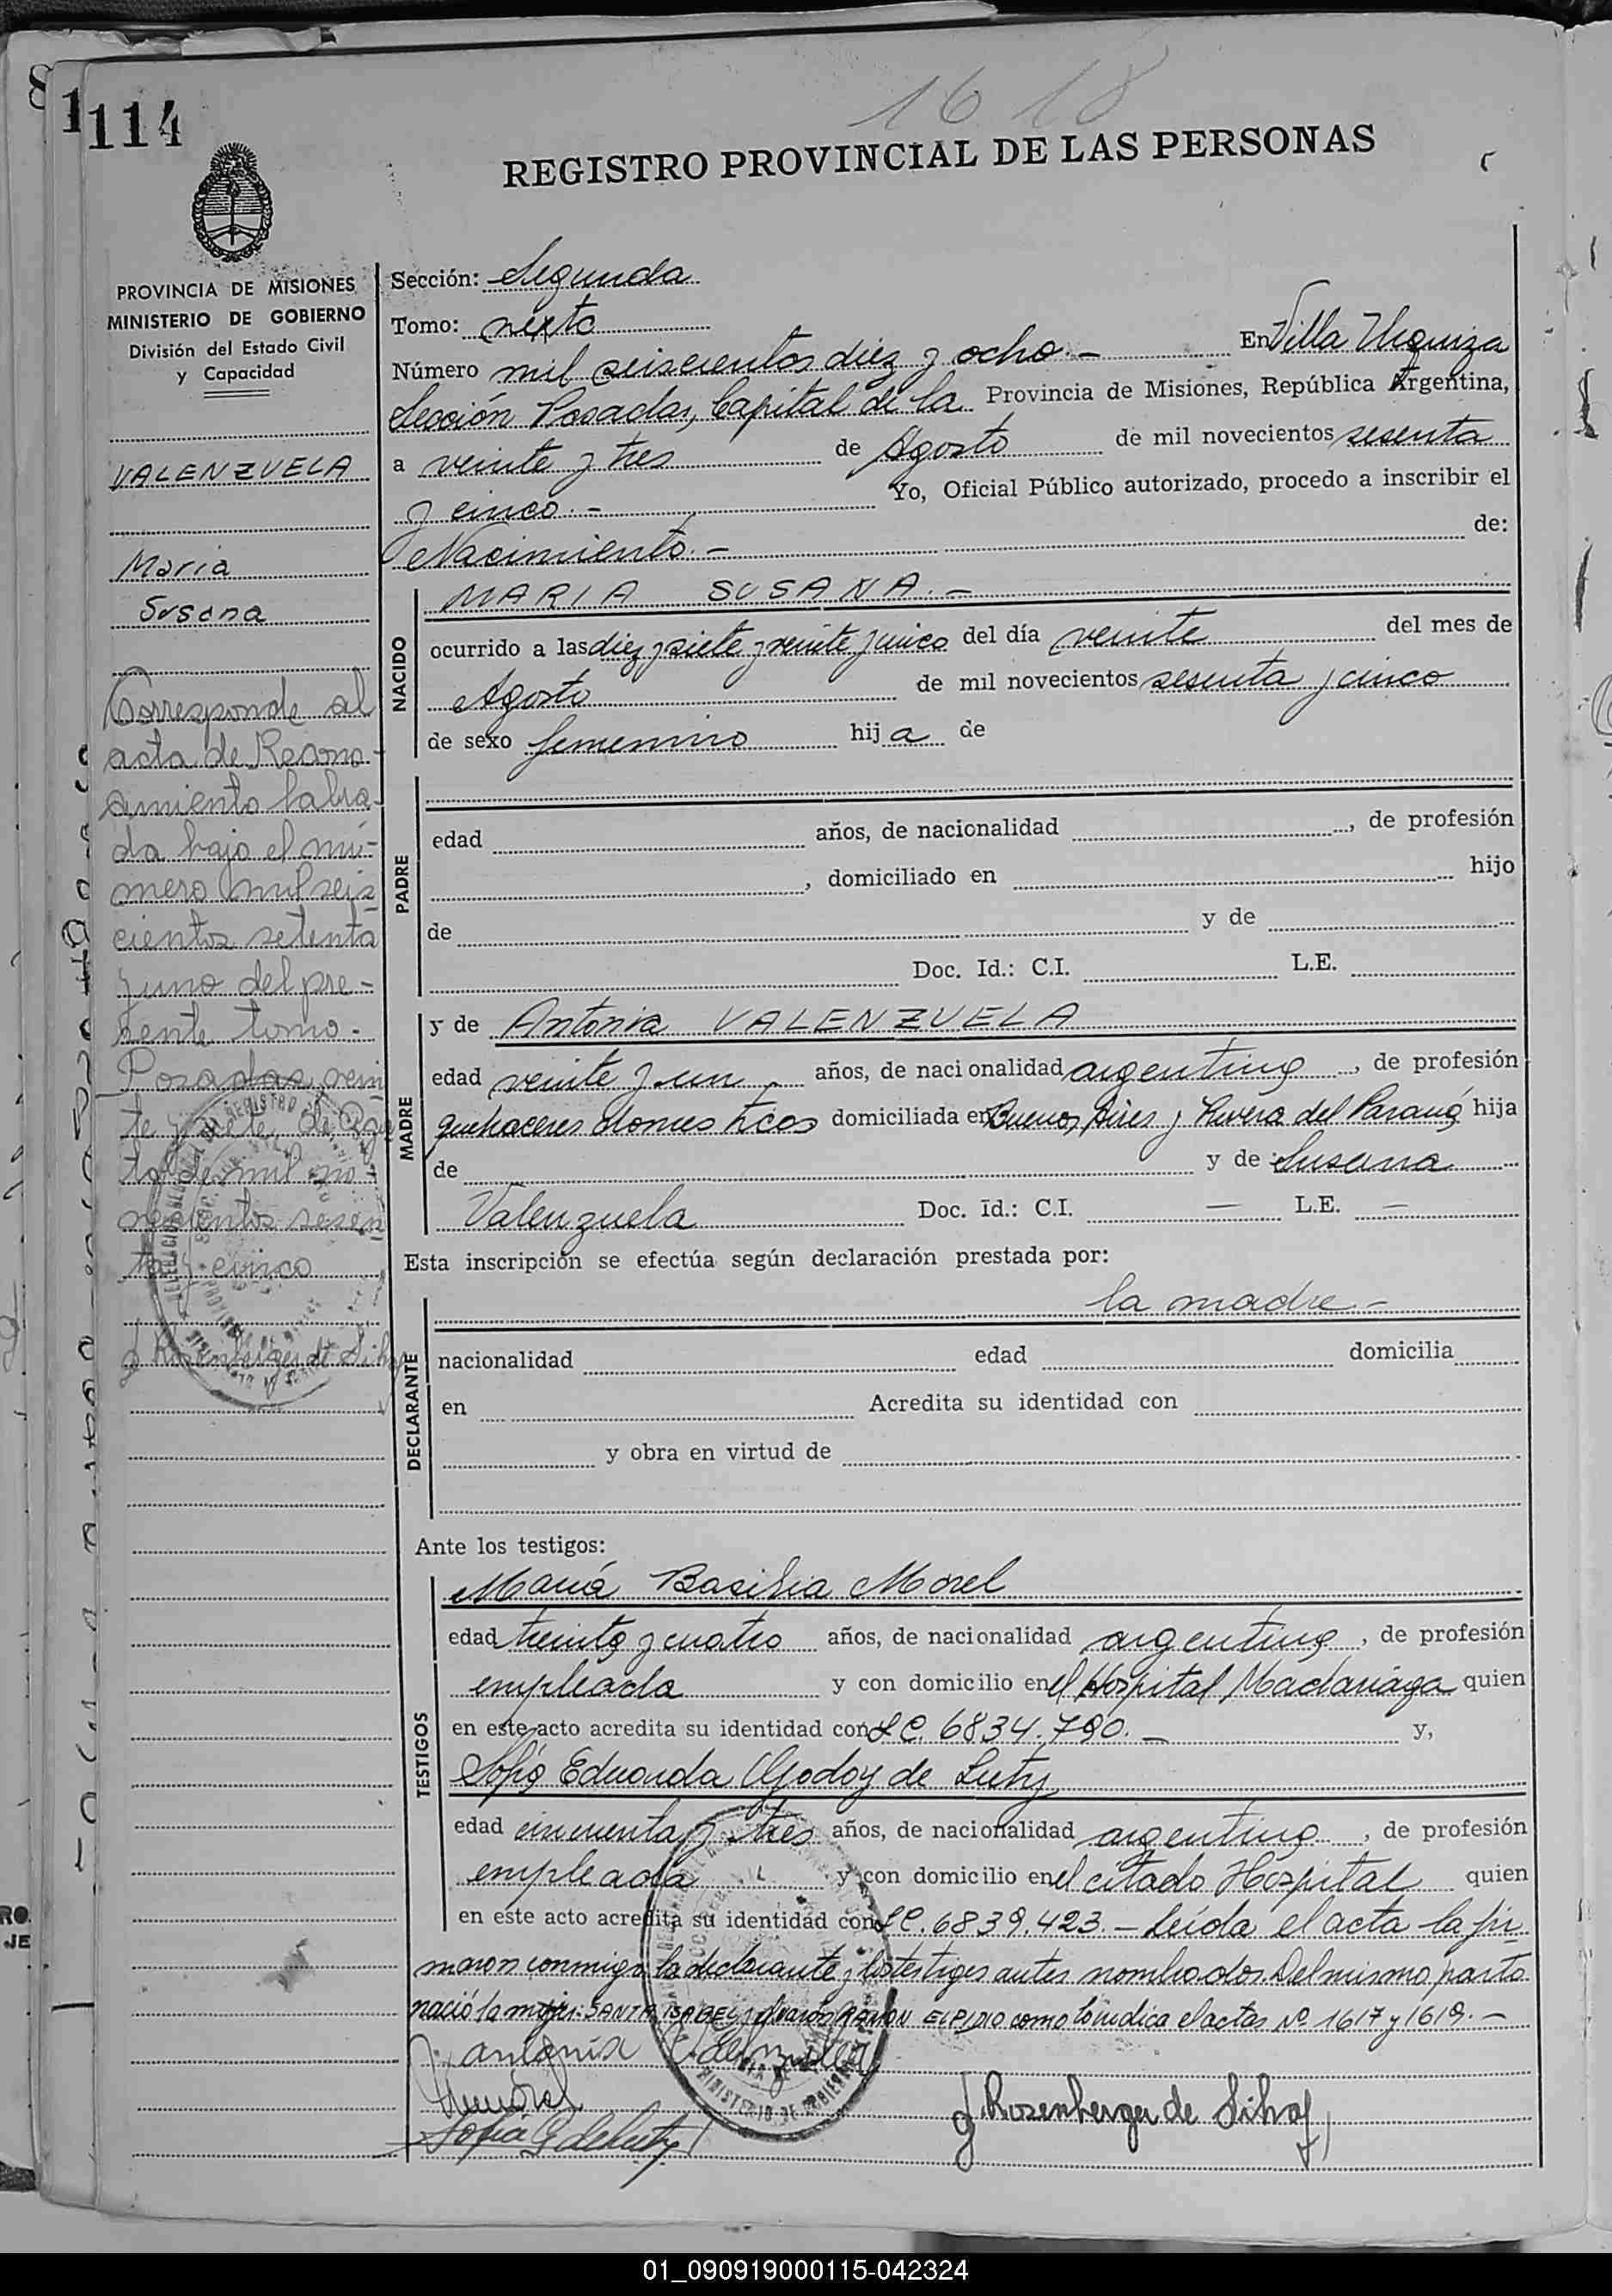 1618
114
REGISTRO PROVINCIAL DE LAS PERSONAS
PROVINCIA DE MISIONES
MINISTERIO DE GOBIERNO
División del Estado Civil
y Capacidad
VALENZUELA
Maria
Susana
Corresponde al
acta de Recono-
cimiento labra-
da bajo el nú-
mero mil seis
cientos setenta
y uno del pre-
sente tomo.-
Posadas, vein
te y siete de Agos
to de mil no-
vecientos sesen
ta y cinco
J Rosenberger de Sihaf
Sección: Segunda
Tomo: sexto
Número mil seiscientos diez y ocho.- En Villa Urquiza
Sección Posadas, Capital de la Provincia de Misiones, República Argentina,
a veinte y tres de Agosto de mil novecientos sesenta
y cinco.- Yo, Oficial Público autorizado, procedo a inscribir el
Nacimiento.- de:
NACIDO
MARIA SUSANA.-
ocurrido a las diez y siete y veinte y cinco del día veinte del mes de
Agosto de mil novecientos sesenta y cinco
de sexo femenino hija de
PADRE
edad años, de nacionalidad , de profesión
, domiciliado en hijo
de y de
Doc. Id.: C.I. L.E.
MADRE
y de Antonia VALENZUELA
edad veinte y un años, de nacionalidad argentina, de profesión
quehaceres domesticos domiciliada en Buenos Aires y Rivera del Paraná hija
de y de Susana
Valenzuela Doc. Id.: C.I. — L.E. —
Esta inscripción se efectúa según declaración prestada por:
DECLARANTE
la madre-
nacionalidad edad domicilia
en Acredita su identidad con
y obra en virtud de
Ante los testigos:
TESTIGOS
María Basilia Morel
edad treinta y cuatro años, de nacionalidad argentina, de profesión
empleada y con domicilio en el Hospital Madariaga quien
en este acto acredita su identidad con L C. 6834.790.- y,
Sofía Eduarda Godoy de Luty
edad cincuenta y tres años, de nacionalidad argentina, de profesión
empleada y con domicilio en el citado Hospital quien
en este acto acredita su identidad con L C. 6839.423.- Leída el acta la fir
maron conmigo la declarante y los testigos antes nombrados Del mismo parto
nació la mujer: SANTA ISABEL y el varón RAMON ELPIDIO como lo indica el actas Nº 1617 y 1619.-
antonia Valenzuela
Sofia G de Luty
J Rosenberger de Sihaf
01_090919000115-042324